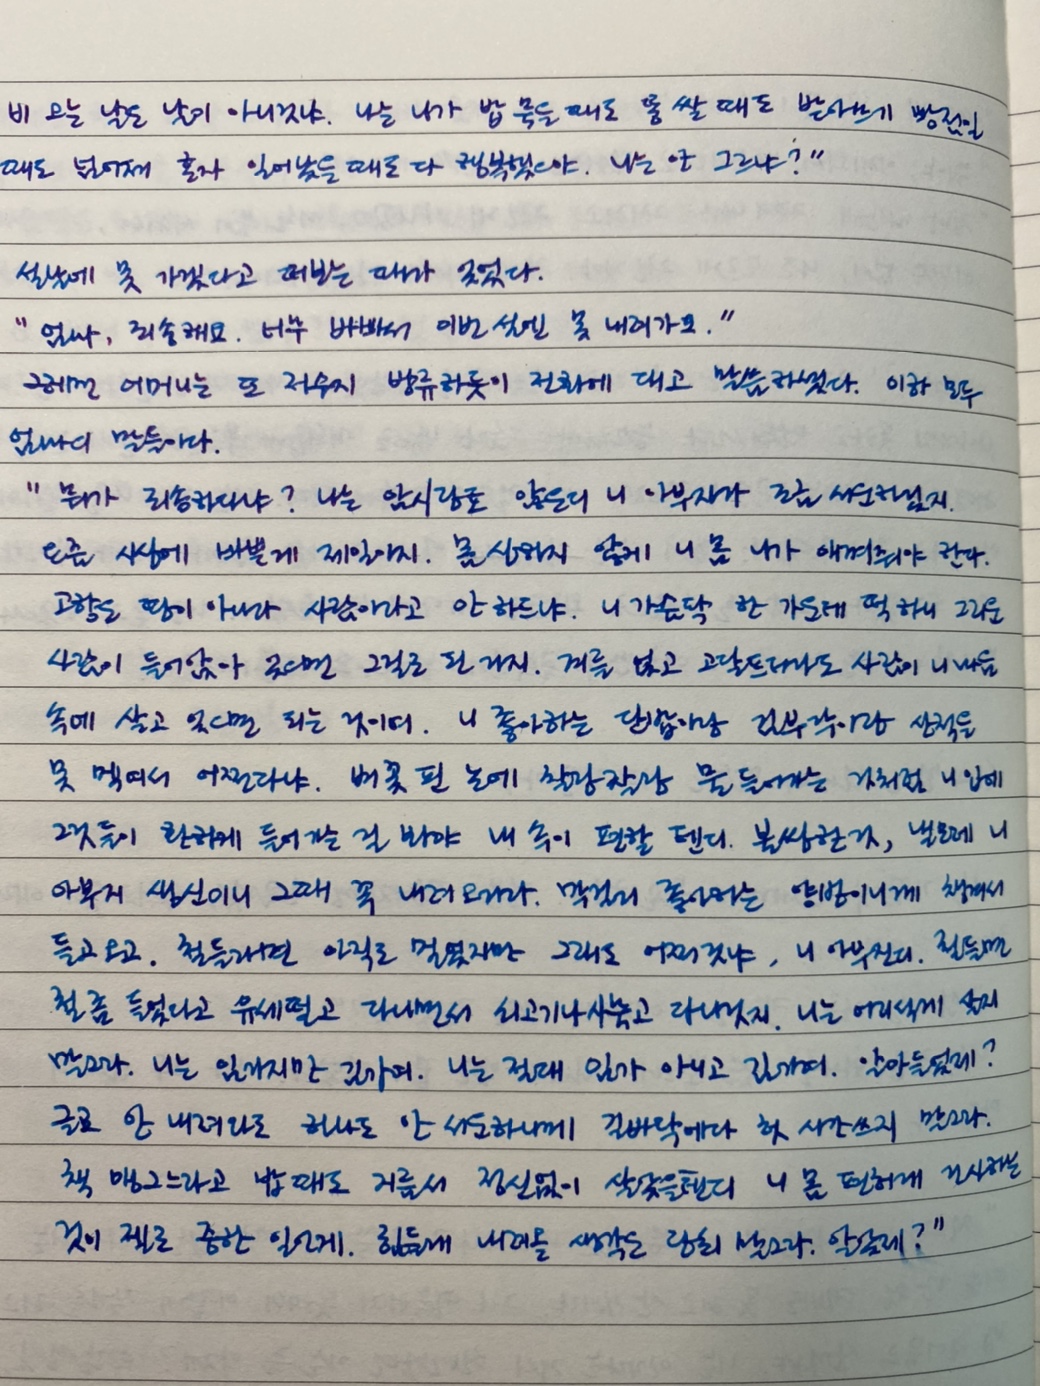 비 오는 날도 날이 아니것냐. 나는 니가 밥 묵을 때도 똥 쌀 때도 받아쓰기 빵점일
때도 넘어져 혼자 일어났을 때도 다 행복했으야. 너는 안 그르냐?"
설날에 못 가겠다고 떠받는 때가 있었다.
"엄마, 죄송해요. 너무 바빠서 이번 설엔 못 내려가요."
그러면 어머니는 또 저수지 방류하듯이 전화에 대고 말씀하셨다. 이하 모두
엄마의 말들이다.
"뭐가 죄송하다냐? 나는 암시랑토 않은디 니 아부지가 조금 서운하겄지.
요즘 세상에 바쁜게 제일이지. 몸 상하지 않게 니 몸 니가 애껴줘야 쓴다.
고향은 땅이 아니라 사람이라고 안 하드냐. 니 가슴팍 한 가운데 떡 하니 그리운
사람이 들어앉아 있으면 그걸로 된 거지. 겨를 없고 고달프더라도 사람이 니 마음
속에 살고 있으면 되는 것이여. 니 좋아하는 단밥이랑 김부각이랑 삼척을
못 멕여서 어쩐다냐. 벼꽃 핀 논에 찰랑찰랑 물 들어가는 것처럼 니 입에
그것들이 환하게 들어가는 걸 봐야 내 속이 편할 텐디. 불쌍한 것, 낼모레 니
아부지 생신이니 그때 꼭 내려오니라. 막걸리 좋아하는 양반이니께 챙겨서
들고 오고. 철들라면 아직도 멀었지만 그래도 어찌것냐, 니 아부진디. 철들면
철 좀 들었다고 유세떨고 다니면서 쇠고기나 사묵고 다니것지. 너는 어리석게 살지
말그라. 너는 입가지만 긴가여. 너는 절대 입가 아니고 긴가여. 알아들었제?
글고 안 내려와도 하나도 안 서운하니께 길바닥에다 헛 시간쓰지 말그라.
책 맹그느라고 밥 때도 거름서 정신없이 살았을텐디 니 몸 편하게 건사하는
것이 젤로 중한 일인게. 힘들게 내려올 생각은 당최 말그라. 알았제?"